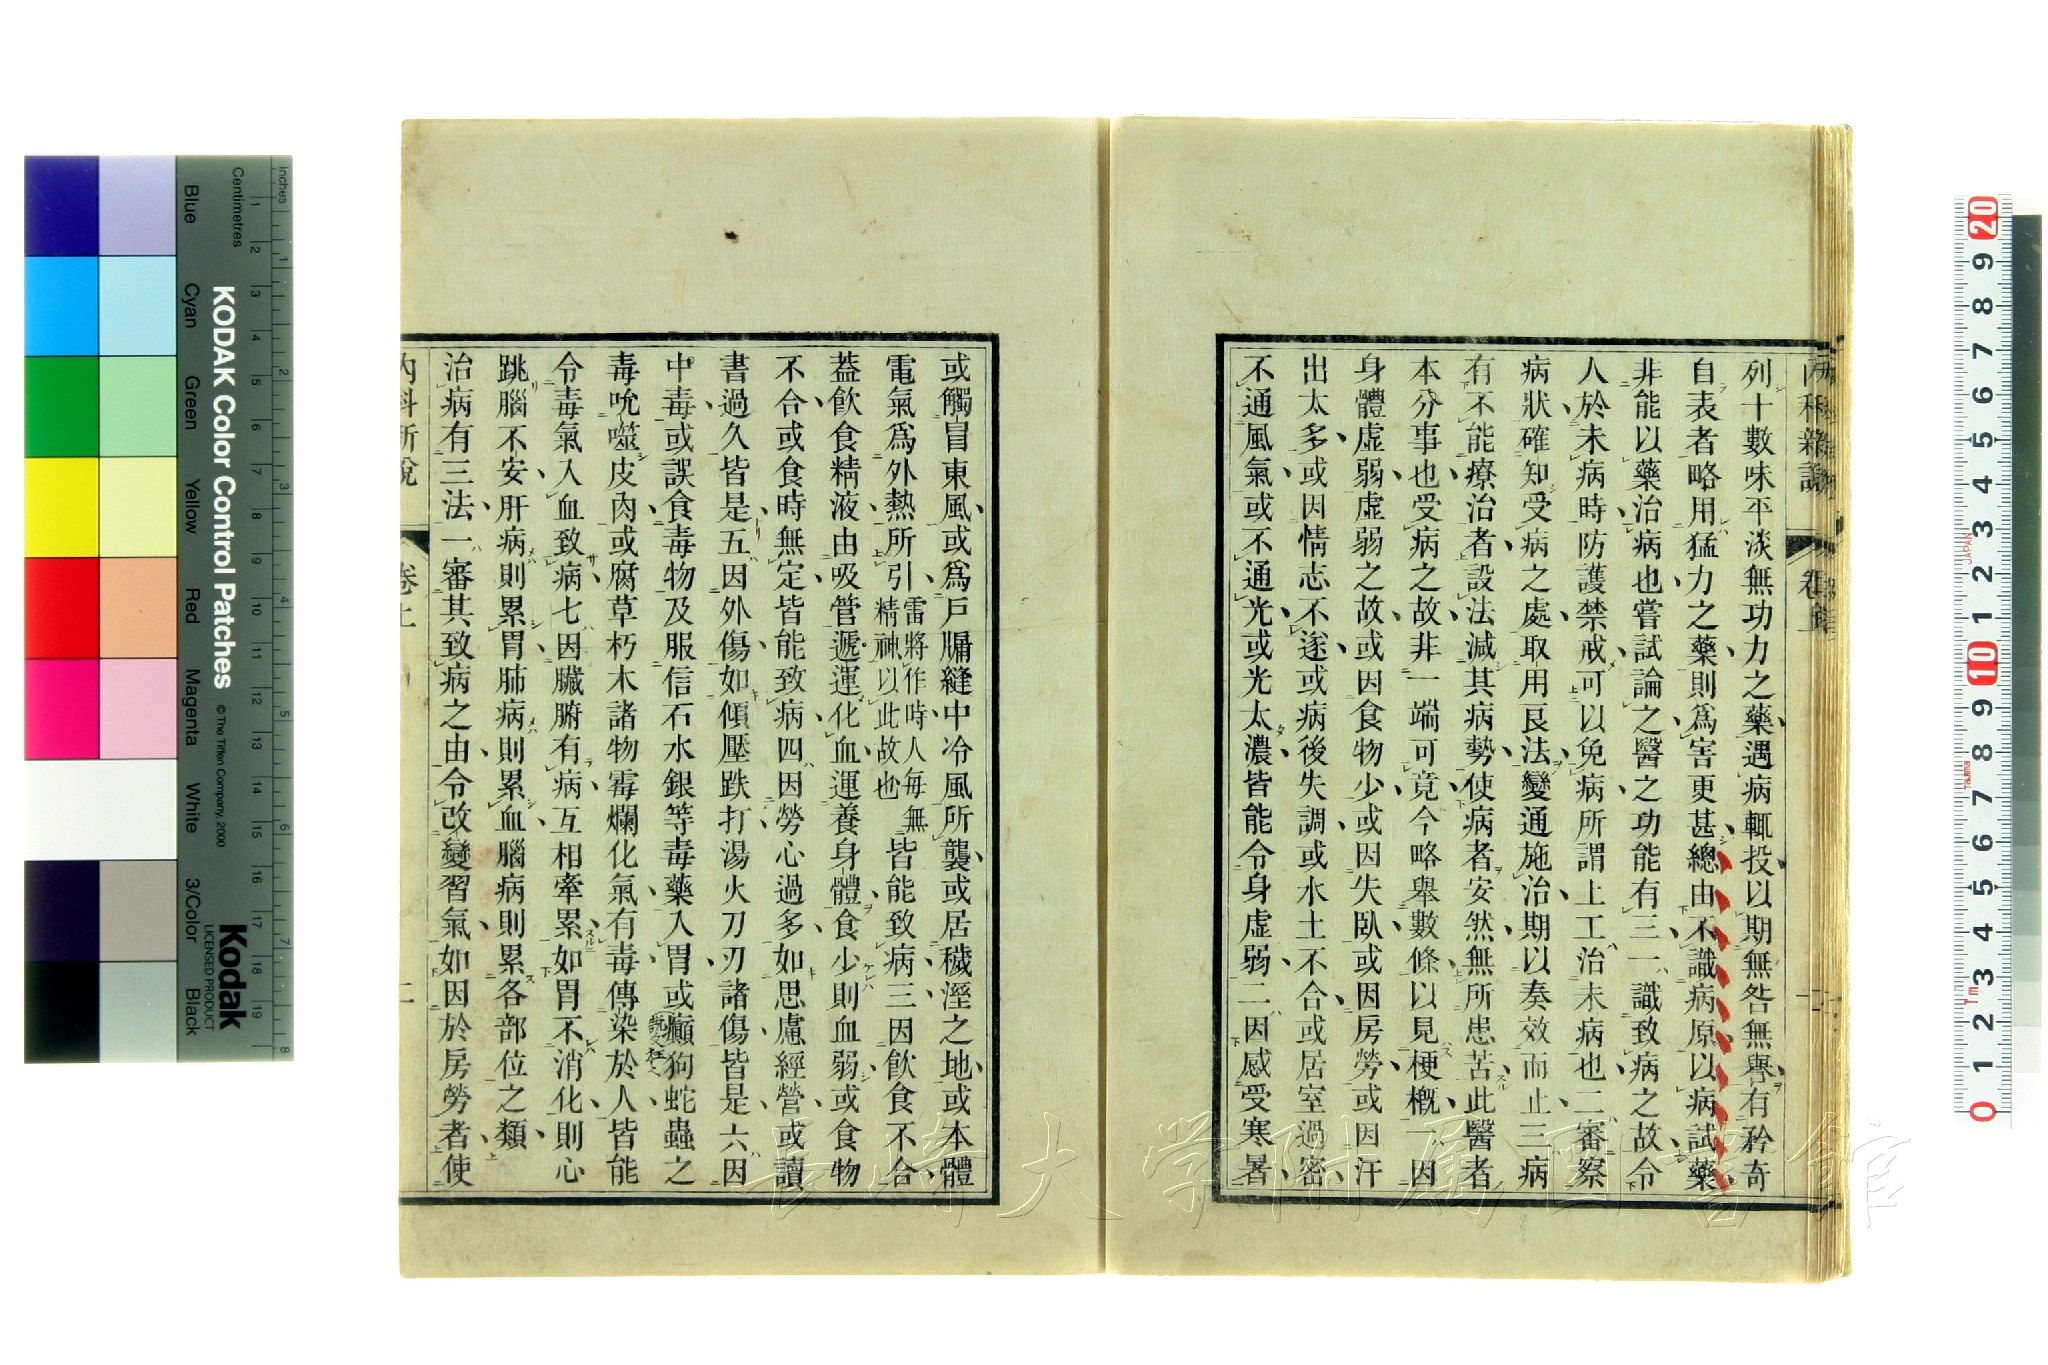 列十數味平淡無功力之藥遇病輒投以期無咎無譽有矜奇
自表者略用猛力之藥則爲害更甚總由不識病原以病試藥
非能以藥治病也嘗試論之醫之功能有三一識致病之故令
人於未病時防護禁戒可以免病所謂上工治未病也二審察
病狀確知受病之處取用良法變通施治期以奏效而止三病
有不能療治者設法減其病勢使病者安然無所患苦此醫者
本分事也受病之故非一端可竟今略舉數條以見梗概一因
身體虛弱虛弱之故或因食物少或因失臥或因房勞或因汗
出太多或因情志不遂或病後失調或水土不合或居室過密
不通風氣或不通光或光太濃皆能令身虛弱二因感受寒暑
或觸冒東風或爲戶牖縫中冷風所襲或居穢溼之地或本體
電氣爲外熱所引雷將作時人每無精神以此故也皆能致病三因飲食不合
蓋飲食精液由吸管遞運化血運養身體食少則血弱或食物
不合或食時無定皆能致病四因勞心過多如思慮經營或讀
書過久皆是五因外傷如傾壓跌打湯火刀刃諸傷皆是六因
中毒或誤食毒物及服信石水銀等毒藥入胃或癲狗蛇蟲之
毒吮噬皮肉或腐草朽木諸物霉爛化氣有毒傳染於人皆能
令毒氣入血致病七因臟腑有病互相牽累如胃不消化則心
跳腦不安肝病則累胃肺病則累血腦病則累各部位之類
治病有三法一審其致病之由令改變習氣如因於房勞者使
內科新說
卷上
二
KODAK Color Control Patches
© The Tiffen Company, 2000
Kodak
LICENSED PRODUCT
Centimetres
Inches
Blue
Cyan
Green
Yellow
Red
Magenta
White
3/Color
Black
1 2 3 4 5 6 7 8 9 10 11 12 13 14 15 16 17 18 19
1 2 3 4 5 6 7 8
20 9 8 7 6 5 4 3 2 1 10 9 8 7 6 5 4 3 2 1 0
JAPAN
Tajima
1m
長崎大学附属図書館